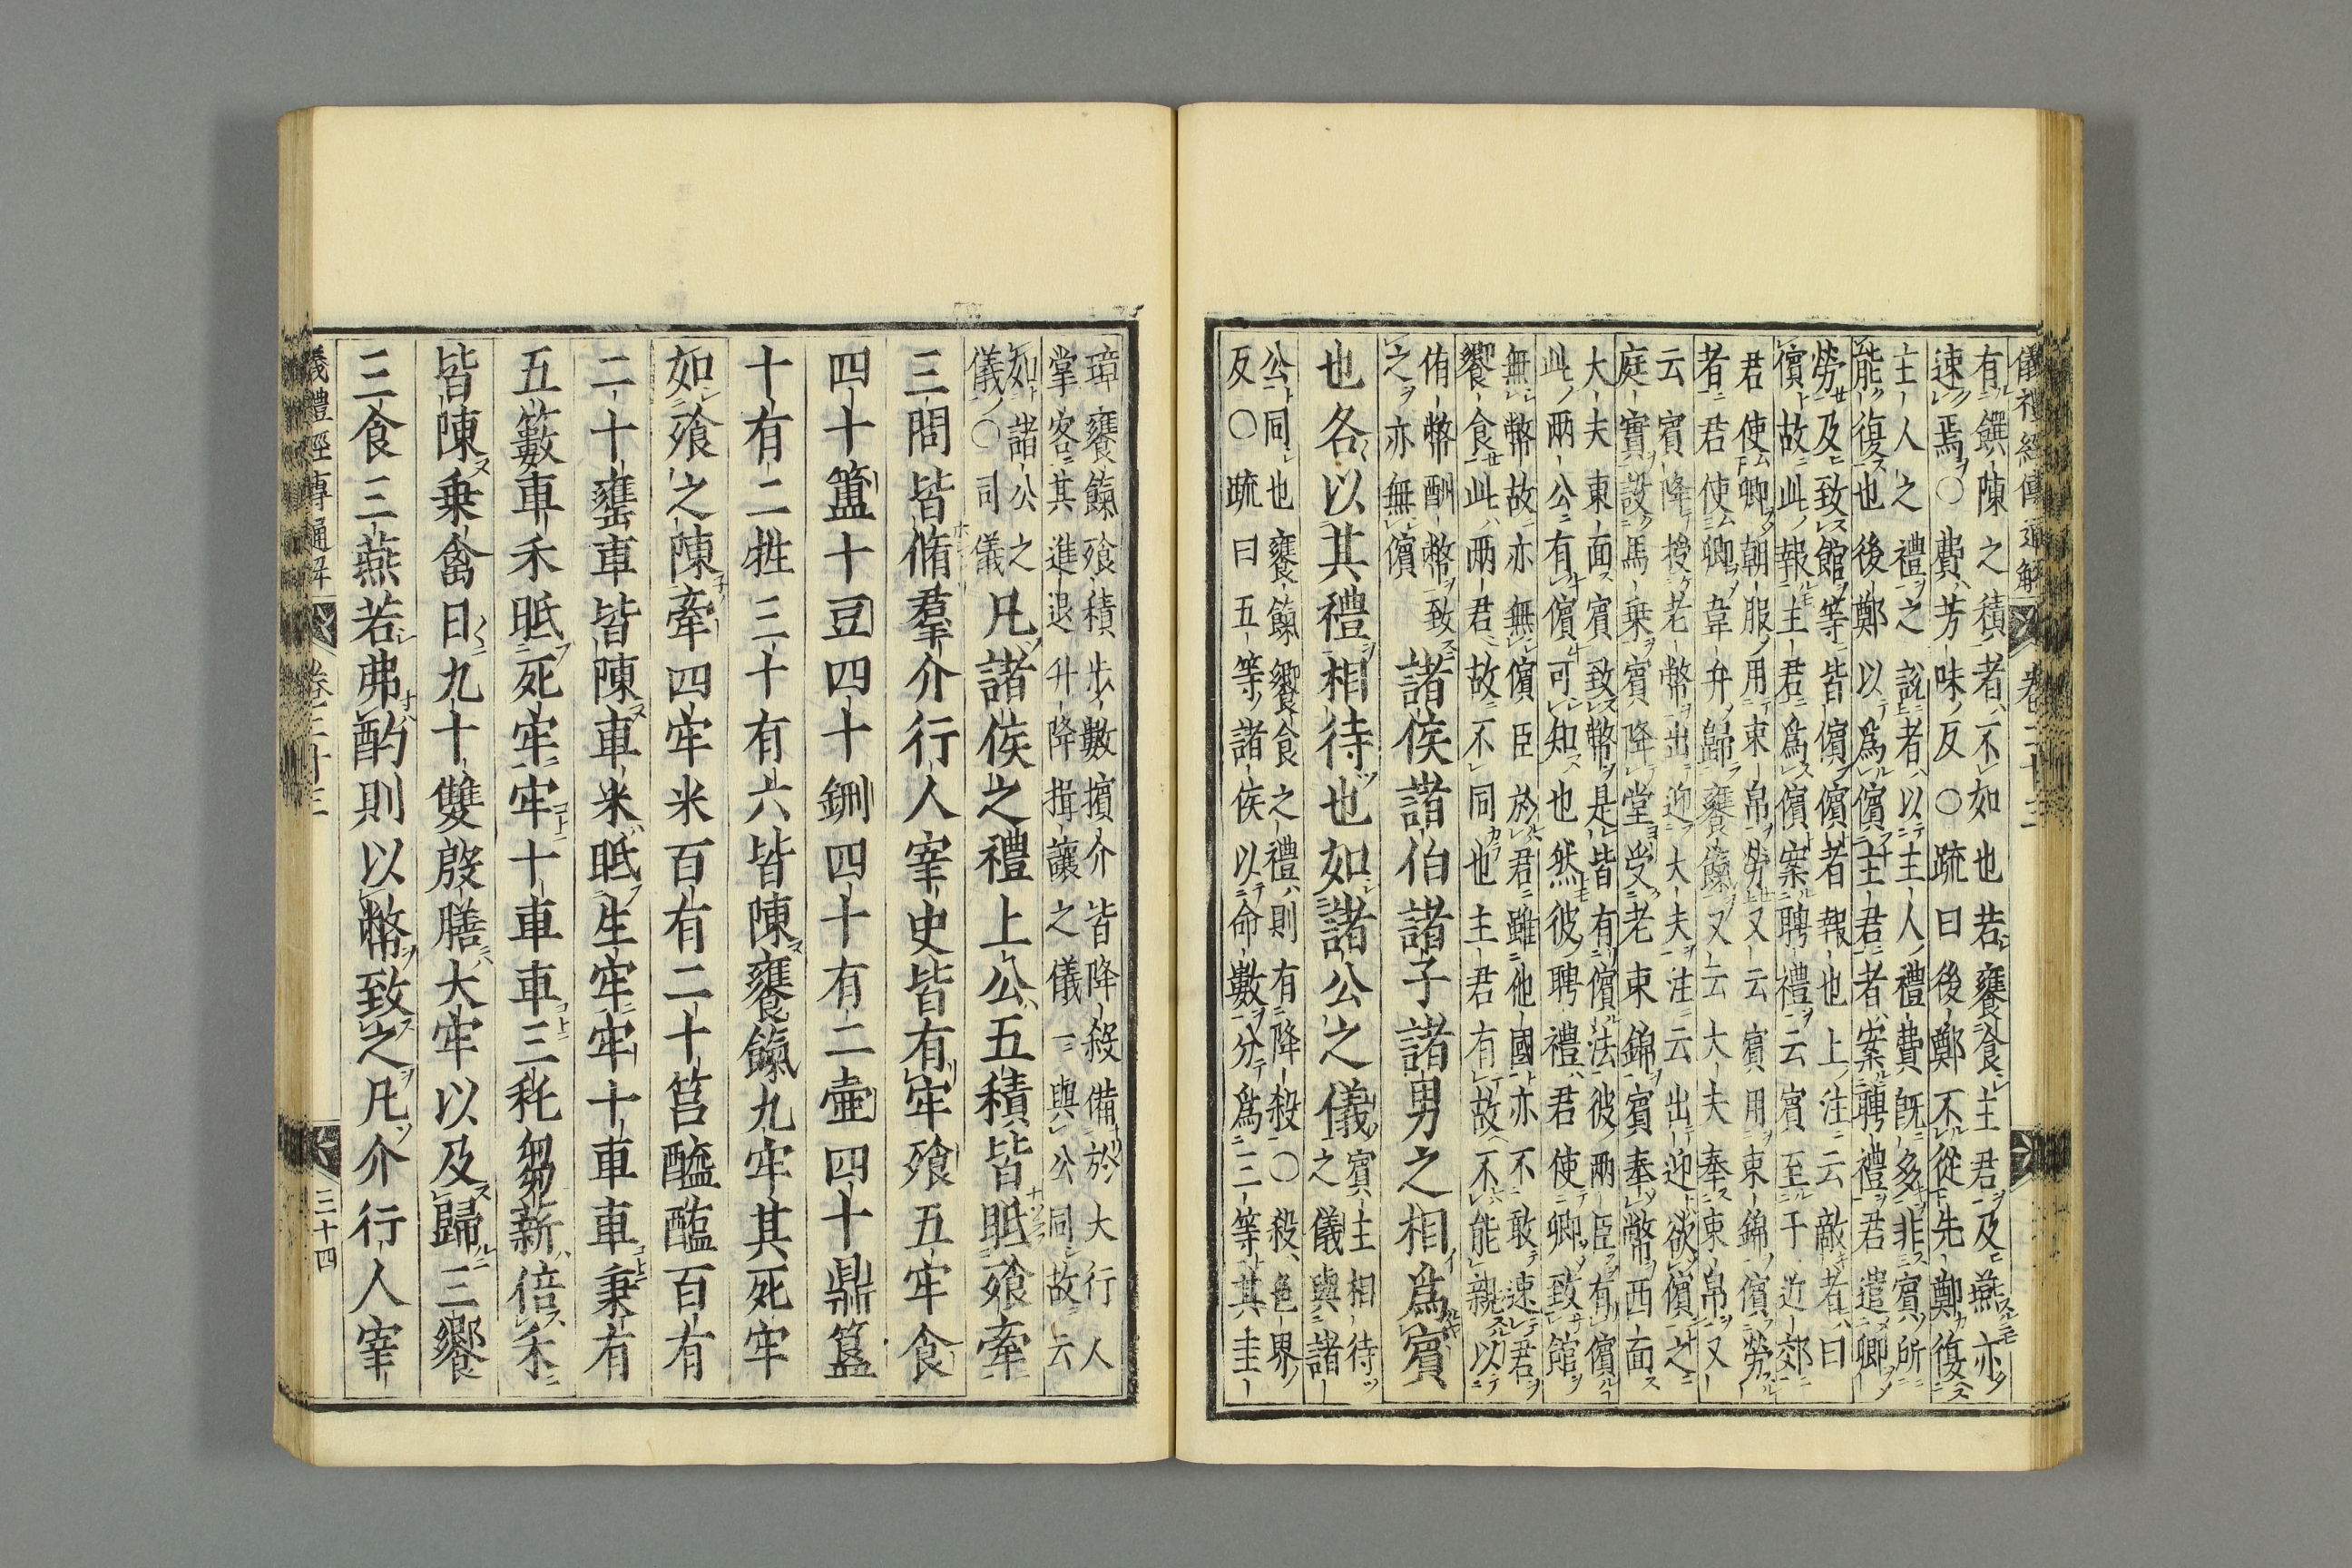 儀禮經傳通解 卷二十三
有饌陳之積者不如也若饔食主君及燕亦
速焉〇費芳味反〇疏曰後鄭不從先鄭復
主人之禮之說者以主人禮費既多非賓所
能復也後鄭以爲儐主君者案聘禮君遣卿
勞及致館等皆儐儐者報也上注云敵者曰
儐故此報主君爲儐案聘禮云賓至于近郊
君使卿朝服用束帛勞又云賓用束錦儐勞
者君使卿韋弁歸饔餼又云大夫奉束帛又
云賓降授老幣出迎大夫注云出迎欲儐之
庭實設馬乗賓降堂受老束錦賓奉幣西面
大夫東面賓致幣是皆有儐法彼兩臣有儐
此兩公有儐可知也然彼聘禮君使卿致館
無幣故亦無儐臣於君雖他國亦不敢速君
饗食此兩君故不同也主君有故不能親以
侑幣酬幣致
之亦無儐
諸侯諸伯諸子諸男之相爲賓
也各以其禮相待也如諸公之儀
賓主相待
之儀與諸
公同也饔餼饗食之禮則有降殺〇殺色界
反〇疏曰五等諸侯以命數分爲三等其圭
璋饔餼飱積步數擯介皆降殺備於大行人
掌客其進退升降揖讓之儀一與公同故云
如諸公之
儀〇司儀
凡諸侯之禮上公五積皆眡飱牽
三問皆脩羣介行人宰史皆有牢飱五牢食
四十簠十豆四十鉶四十有二壷四十鼎簋
十有二牲三十有六皆陳饔餼九牢其死牢
如飱之陳牽四牢米百有二十筥醯醢百有
二十罋車皆陳車米眡生牢牢十車車秉有
五籔車禾眡死牢牢十車車三秅芻薪倍禾
皆陳乗禽日九十雙殷膳大牢以及歸三饗
三食三燕若弗酌則以幣致之凡介行人宰
儀禮經傳通解 卷二十三 三十四